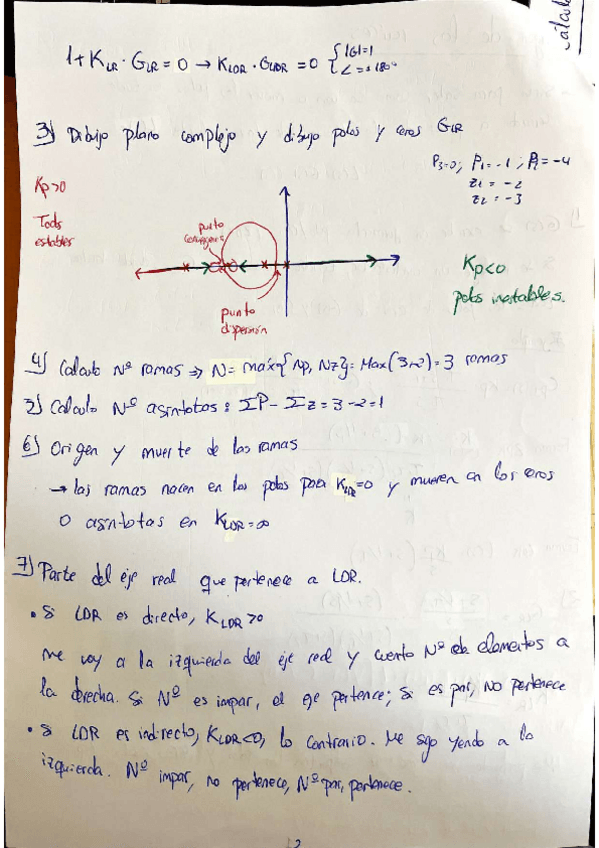 Cálculo
1+K_LR·G_LR=0 → K_LDR·G_LDR=0 { |G|=1
∠=±180º
3) Dibujo plano complejo y dibujo polos y ceros G_LR
P3=0; P1=-1; P2=-4
z1=-2
z2=-3
Kp>0
Tods
estables
punto
convergencia
punto
dispersión
Kp<0
polos inestables.
4) Calculo Nº ramas ⇒ N= máx{Np, Nz}= Max(3,2)=3 ramas
5) Calculo Nº asíntotas: ΣP-Σz=3-2=1
6) Origen y muerte de las ramas
→ las ramas nacen en los polos para K_LDR=0 y mueren en los ceros
o asíntotas en K_LDR=∞
7) Parte del eje real que pertenece a LDR.
• Si LDR es directo, K_LDR>0
Me voy a la izquierda del eje real y cuento Nº de elementos a
la derecha. Si Nº es impar, el eje pertence; Si es par, no pertenece
• Si LDR es indirecto, K_LDR<0, lo contrario. Me sigo yendo a la
izquierda. Nº impar, no pertenece, Nº par, pertenece.
2